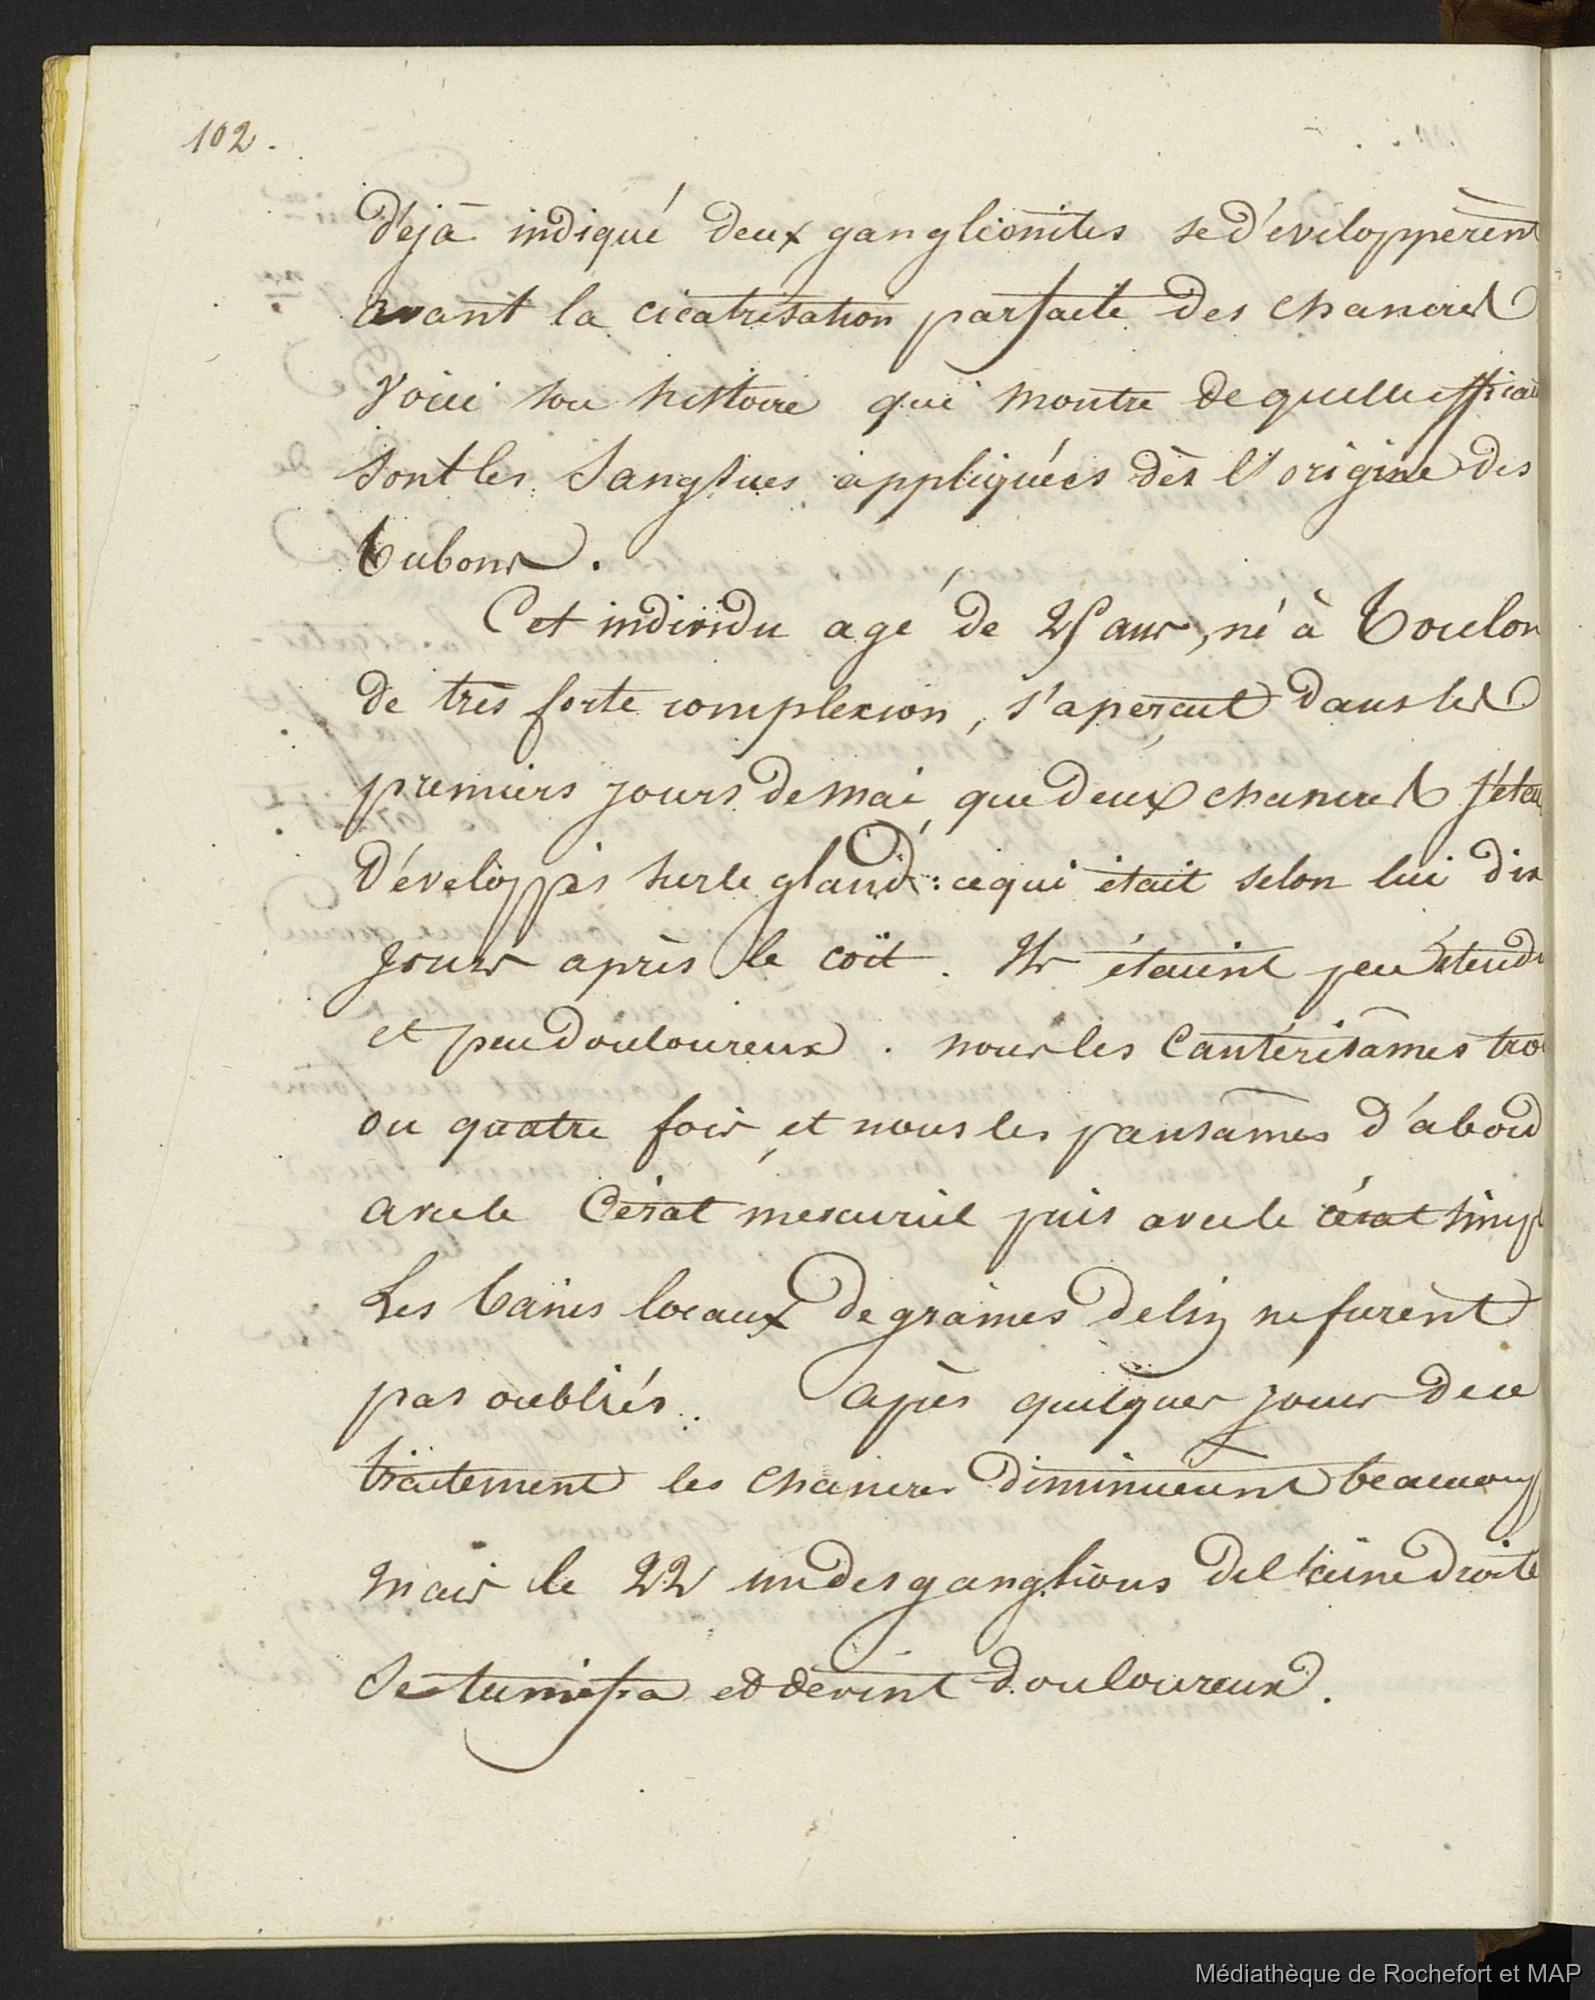 102.
Déjà indiqué deux ganglionites se développèrent
avant la cicatrisation parfaite des chancres
Voici son histoire qui montre de quelle efficac
sont les Sangsues appliquées dès l'origine des
bubons.
Cet individu agé de 25 ans, né à Toulon
de très forte complexion, s'aperçut dans les
premiers jours de mai, que deux chancres s'étai
développés sur le gland : ce qui était selon lui dix
jours après le coït. Ils étaient peu étendu
et peu douloureux. nous les Cautérisâmes troi
ou quatre fois, et nous les pansâmes d'abord
avec le Cérat mercuriel puis avec le cérat simpl
Les bains locaux de graines de lin ne furent
pas oubliés. Après quelques jours de ce
traitement les chancres diminuent beaucoup
mais le 22 un des ganglions de l'aîne droite
se tuméfia et devint douloureux.
Médiathèque de Rochefort et MAP